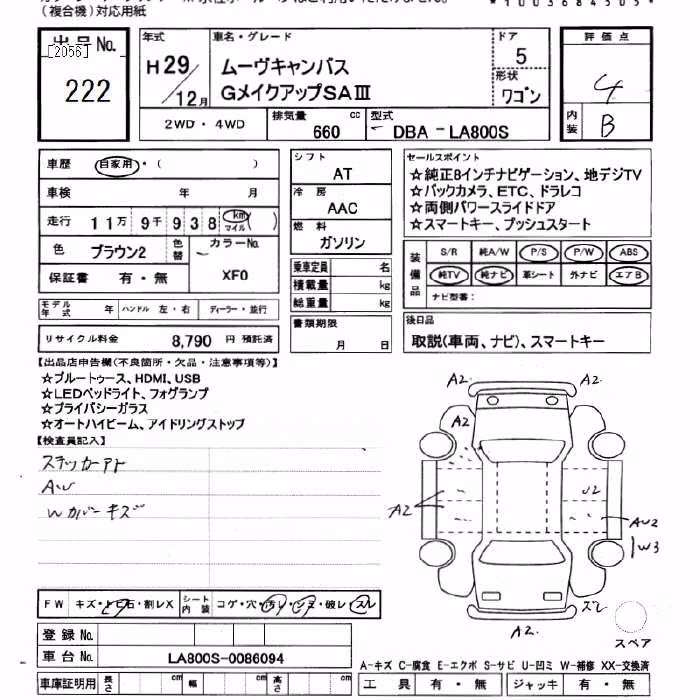 (複合機)対応用紙
*1003684505*
出品No.
[2056]
222
年式
H29/12月
車名・グレード
ムーヴキャンバス
GメイクアップSAⅢ
ドア
5
形状
ワゴン
評価点
4
内装
B
2WD・4WD
排気量
660 cc
型式
DBA - LA800S
車歴 自家用・( )
車検 年 月
走行 11万9千938 km マイル ( )
色 ブラウン2 色替
カラーNo. XF0
保証書 有・無
シフト
AT
冷房
AAC
燃料
ガソリン
乗車定員 名
積載量 kg
総重量 kg
セールスポイント
☆純正8インチナビゲーション、地デジTV
☆バックカメラ、ETC、ドラレコ
☆両側パワースライドドア
☆スマートキー、プッシュスタート
装備品
S/R 純A/W P/S P/W ABS
純TV 純ナビ 革シート 外ナビ エアB
ナビ型番:
モデル年式 年 ハンドル 左・右 ディーラー・並行
リサイクル料金 8,790 円 預託済
書類期限
月 日
後日品
取説(車両、ナビ)、スマートキー
【出品店申告欄(不良箇所・欠品・注意事項等)】
☆ブルートゥース、HDMI、USB
☆LEDヘッドライト、フォグランプ
☆プライバシーガラス
☆オートハイビーム、アイドリングストップ
【検査員記入】
ステッカーアト
AW
Wカバーキズ
A2 A2
A2
A2 U2
AU2
W3
A2 ズレ
スペア
FW キズ・トビ石・割レX シート内装 コゲ・穴・汚レ・シミ・破レ・スレ
登録No.
車台No. LA800S-0086094
車庫証明用 長さ cm 幅 cm 高さ cm
A-キズ C-腐食 E-エクボ S-サビ U-凹ミ W-補修 XX-交換済
工具 有・無 ジャッキ 有・無